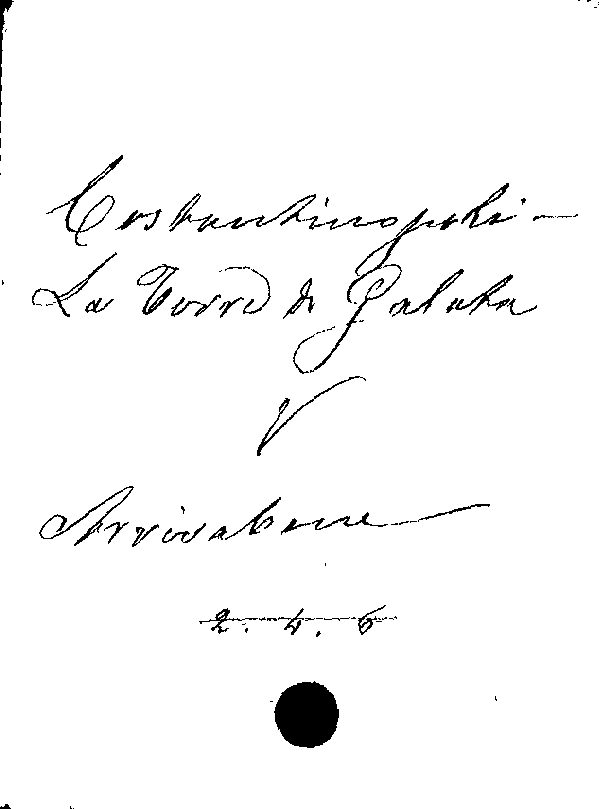 Costantinopoli -
La Torre di Galata
V
Arrivabene
2. 4. 6